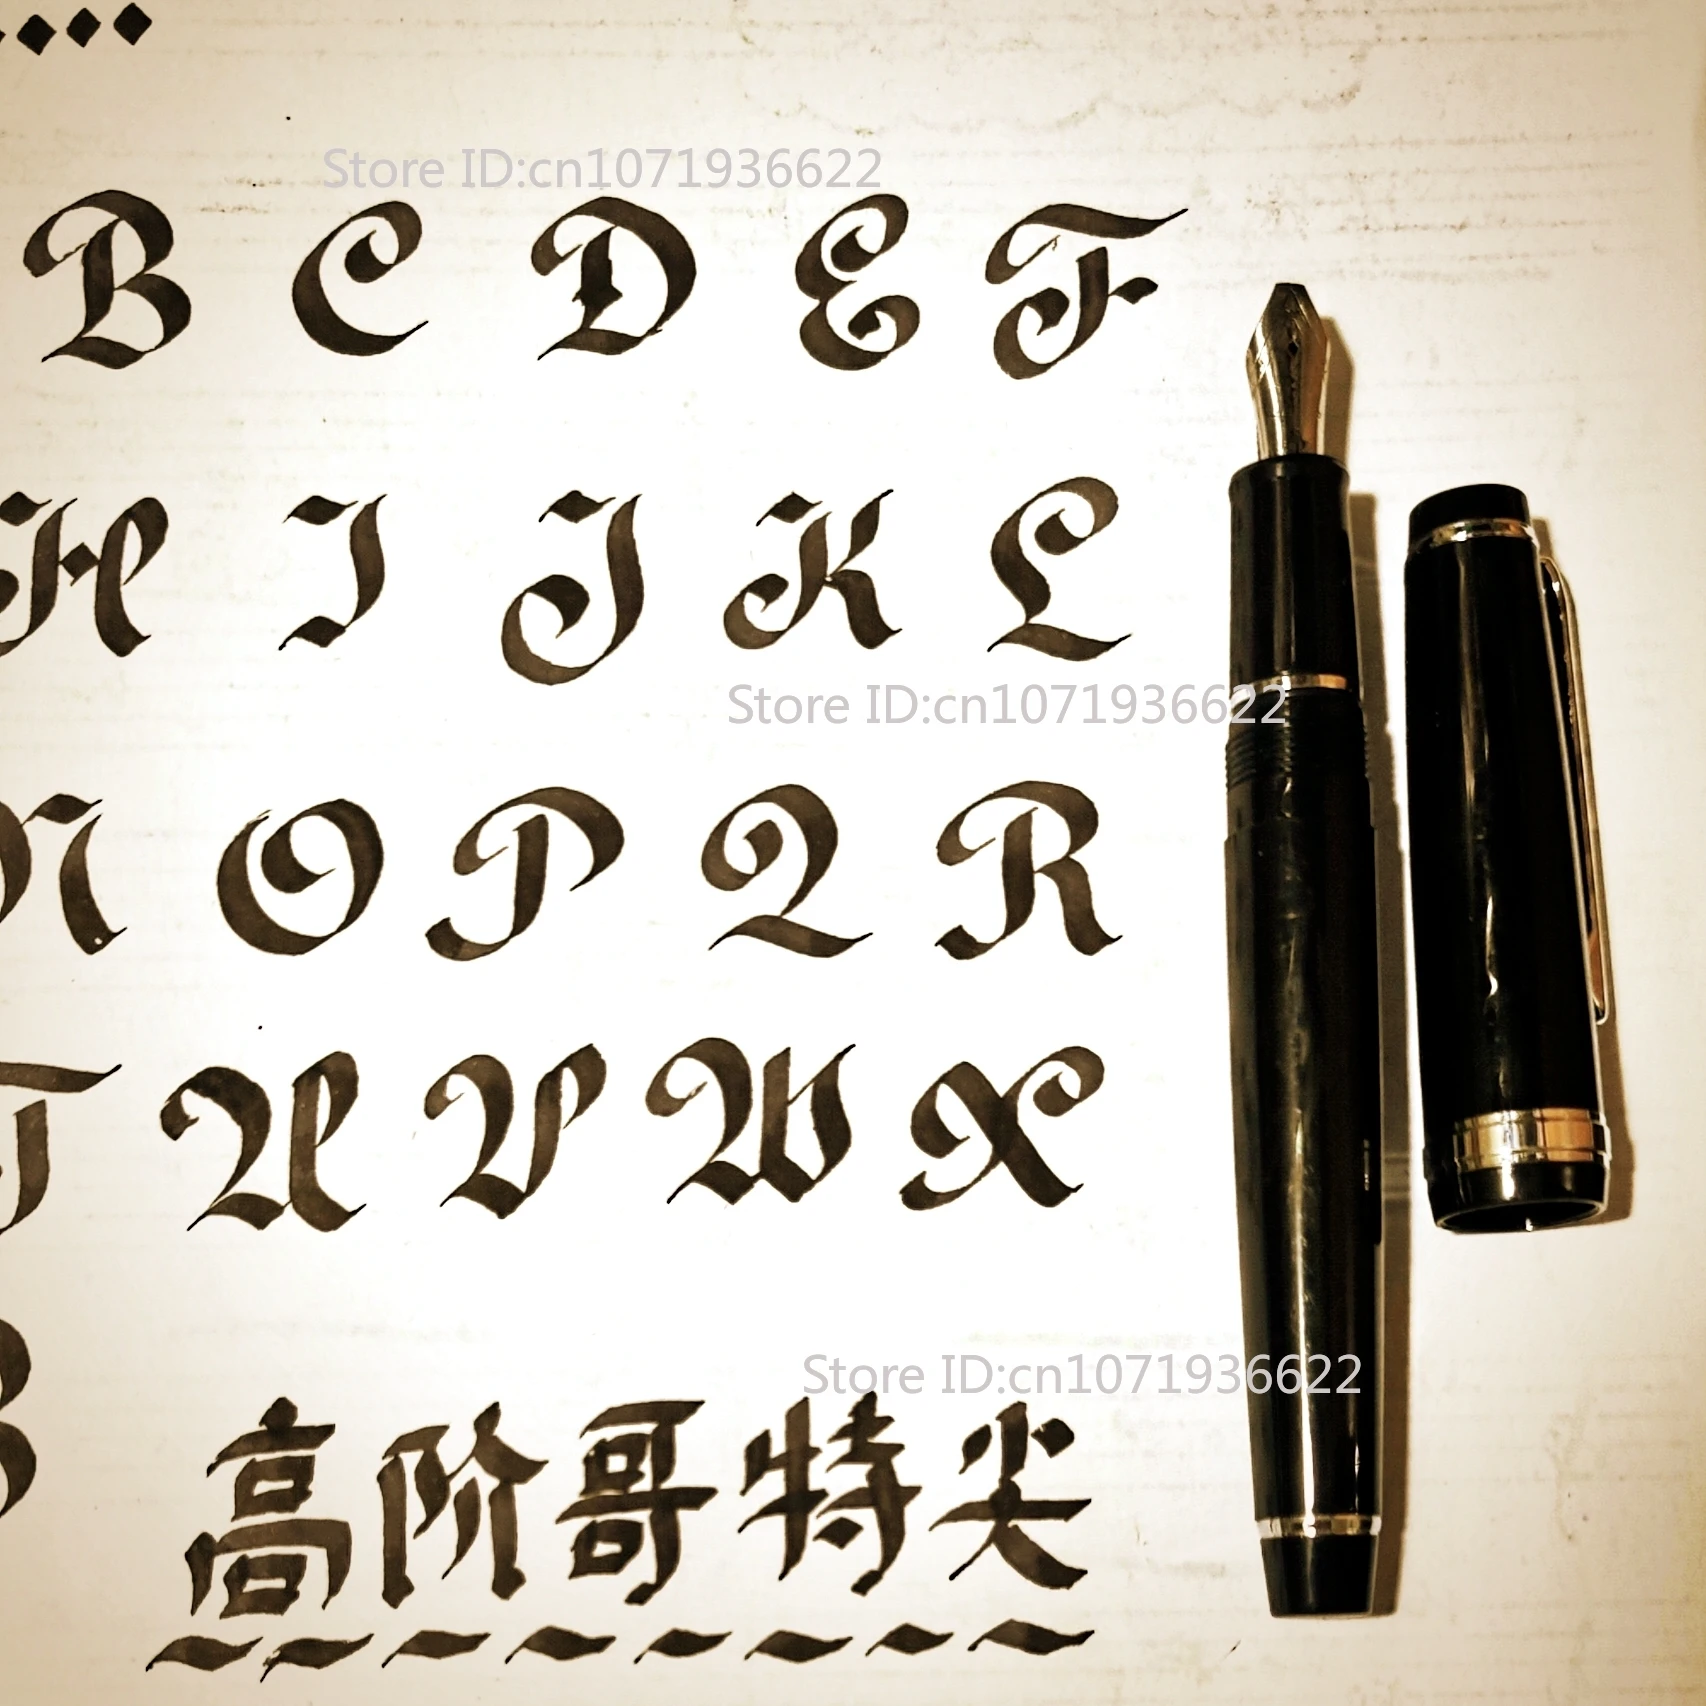 Store ID:cn1071936622
B C D E F
H I J K L
Store ID:cn1071936622
N O P Q R
T U V W X
Store ID:cn1071936622
高阶哥特尖